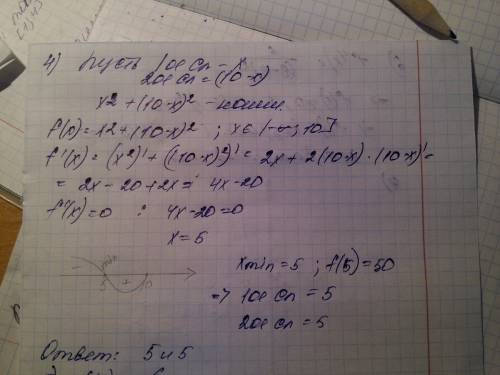 4) Пусть 1ое сл - x
2ое сл = (10-x)
x2 + (10-x)² - наим.
f(x) = x2 + (10-x)² ; x∈ (-∞; 10]
f'(x) = (x²)' + ((10-x)²)' = 2x + 2(10-x)·(10-x)' =
= 2x - 20 + 2x = 4x - 20
f'(x) = 0 : 4x - 20 = 0
x = 5
- min 5 + 10
xmin = 5 ; f(5) = 50
=> 1ое сл = 5
2ое сл = 5
Ответ: 5 и 5